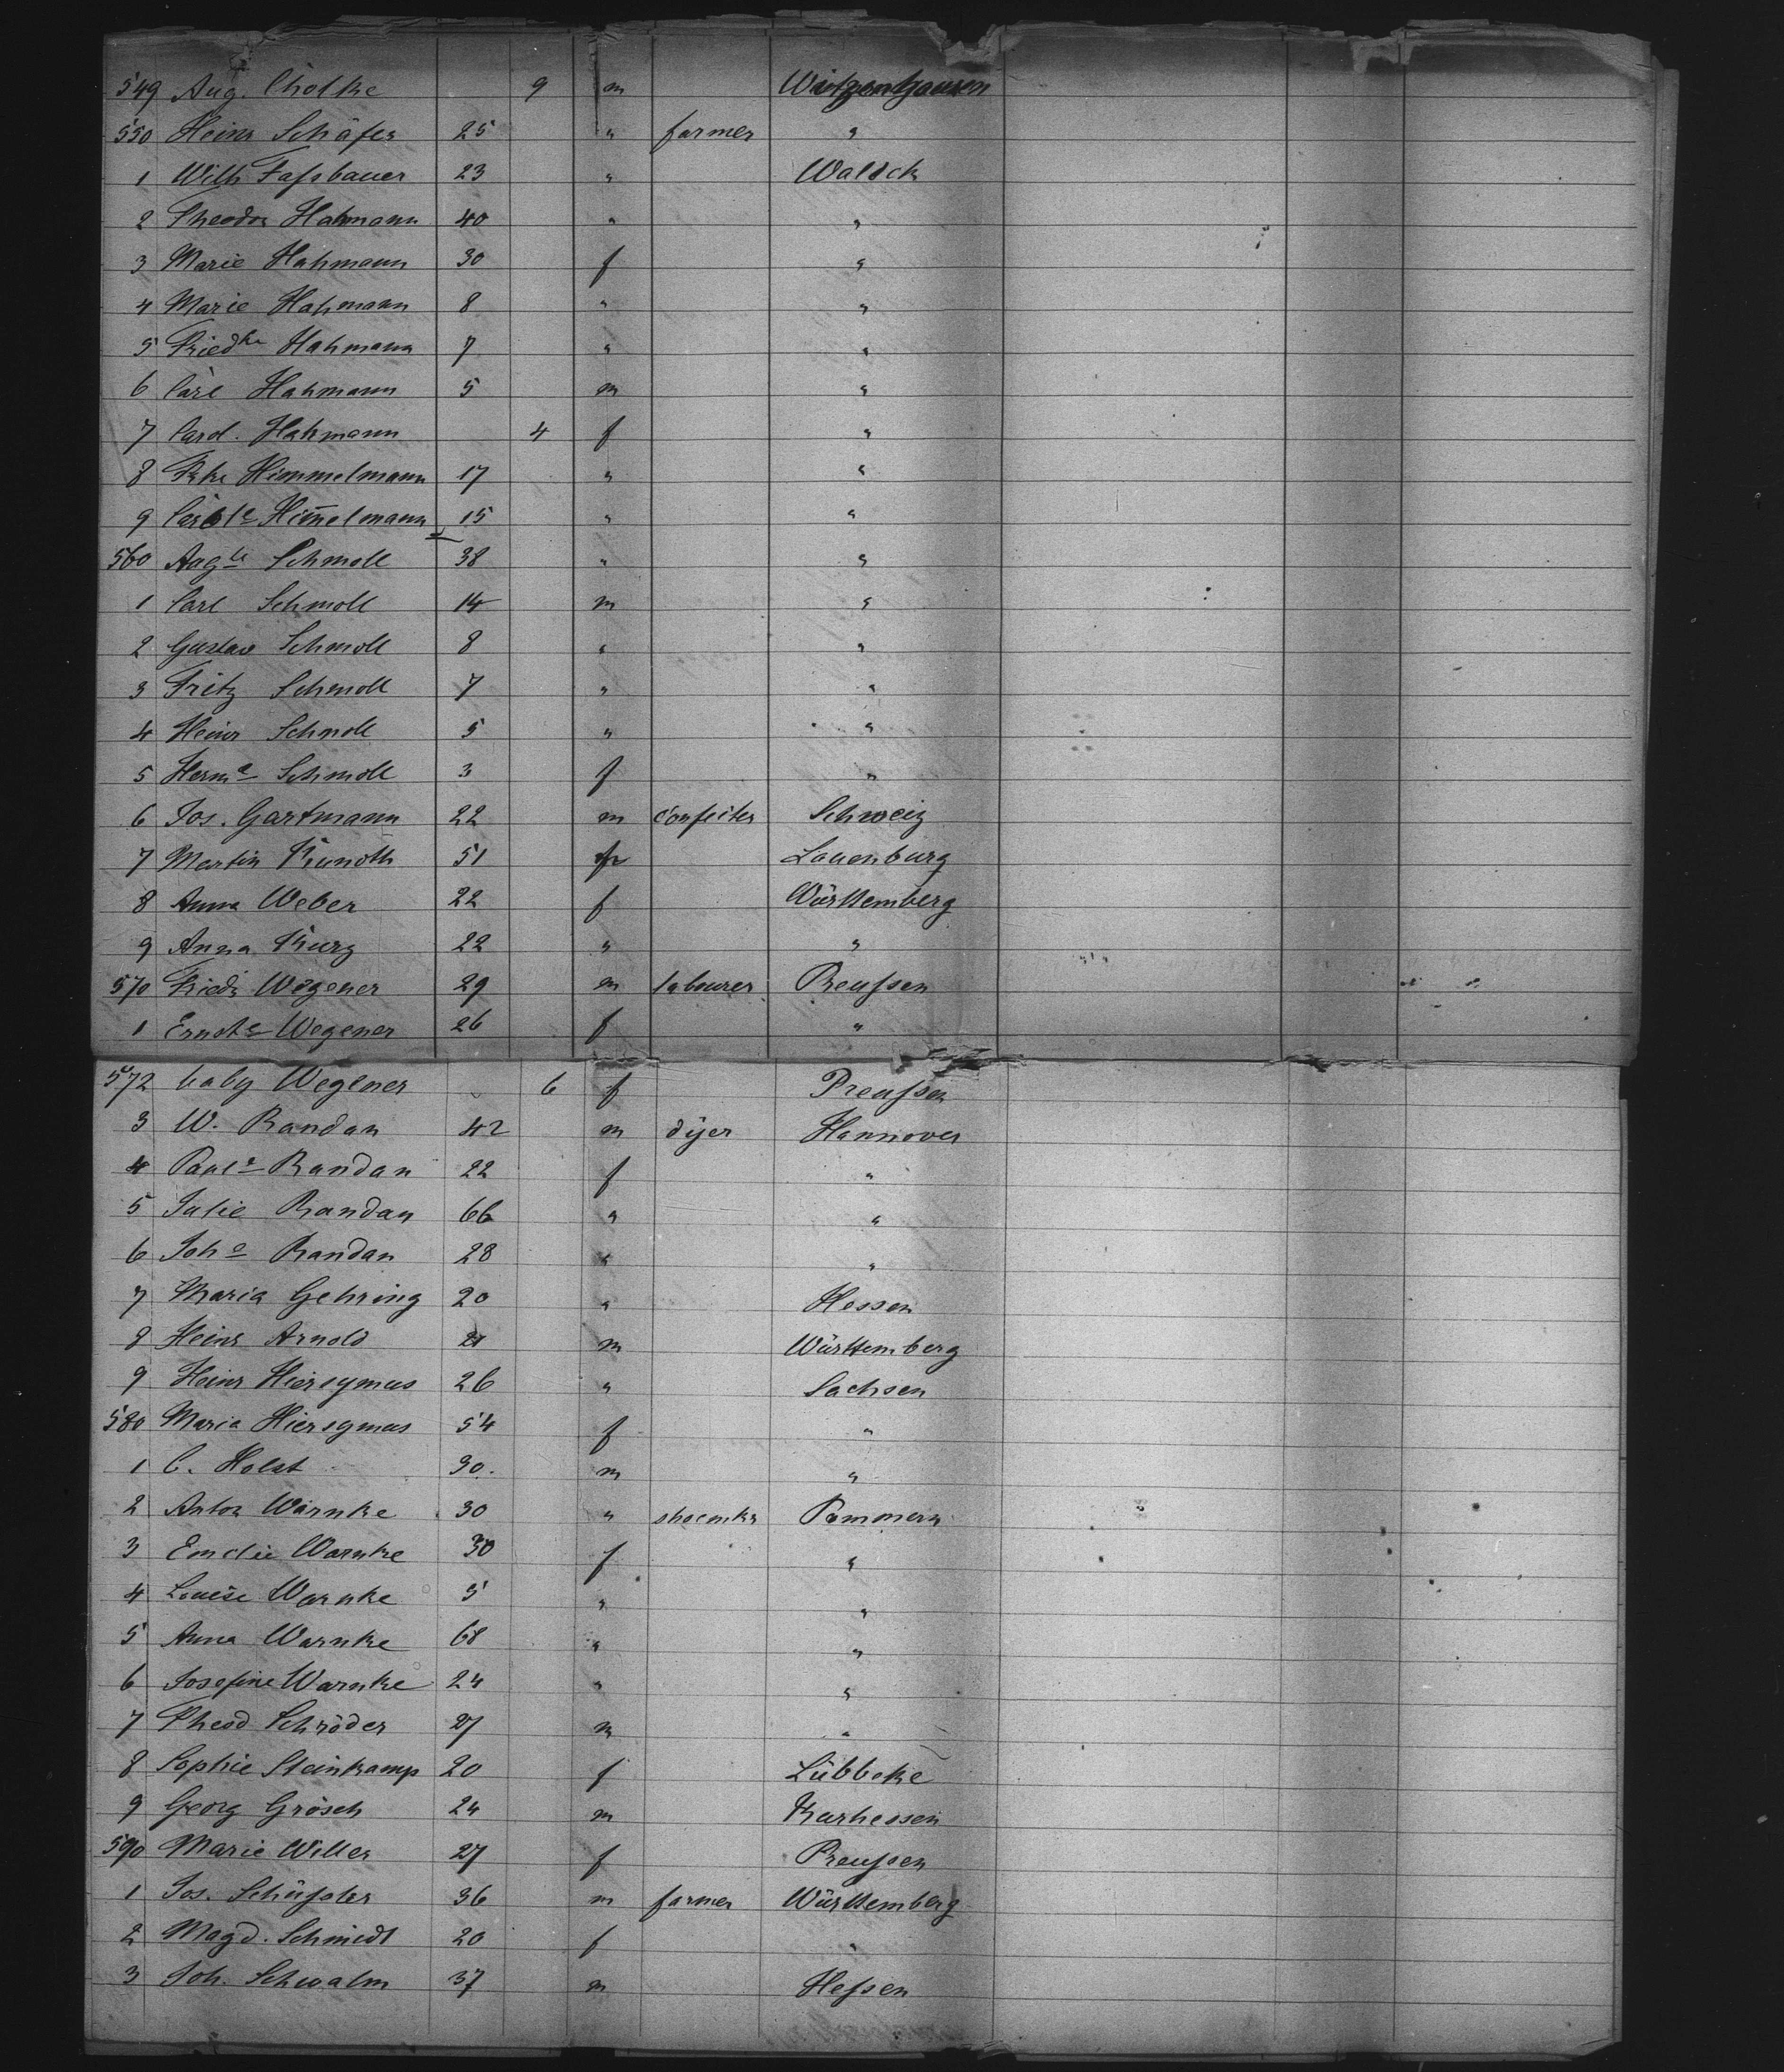 549 Aug. Cholke 9 m Witzenhausen
550 Heinr Schäfer 25 " farmer "
1 Wilh Faßbauer 23 " Waldck
2 Theodor Hahmann 40 " "
3 Marie Hahmann 30 f "
4 Marie Hahmann 8 " "
5 Friedke Hahmann 7 " "
6 Carl Hahmann 5 m "
7 Carol. Hahmann 4 f "
8 Frke Himmelmann 17 " "
9 Himelmann 15 " "
560 Augte Schmoll 38 " "
1 Carl Schmoll 14 m "
2 Gustav Schmoll 8 " "
3 Fritz Schmoll 7 " "
4 Heinr Schmoll 5 " "
5 Herme Schmoll 3 f "
6 Jos. Gartmann 22 m confeiter Schweiz
7 Martin Kunoth 51 Lauenburg
8 Anna Weber 22 f Württemberg
9 Anna Kurz 22 " "
570 Friedr Wegener 29 m labourer Preußen
1 Ernste Wegener 26 f "
572 baby Wegener 6 f Preußen
3 W. Randan 42 m dyer Hannover
4 Paule Randan 22 f "
5 Julie Randan 66 " "
6 Johe Randan 28 " "
7 Maria Gehring 20 " Hessen
8 Heinr Arnold 21 m Württemberg
9 Heinr Hieroymus 26 " Sachsen
580 Maria Hieroymus 54 f "
1 C. Holst 30. m "
2 Anton Warnke 30 " shoemkr Pommern
3 Emelie Warnke 30 f "
4 Louise Warnke 5 " "
5 Anna Warnke 68 " "
6 Josefine Warnke 24 " "
7 Theod Schröder 27 m "
8 Sophie Steinkamp 20 f Lübbeke
9 Georg Grösch 24 m Kurhessen
590 Marie Willer 27 f Preußen
1 Jos. Schüßler 36 m farmer Württemberg
2 Magd. Schmidt 20 f "
3 Joh. Schwalm 37 m Heßen